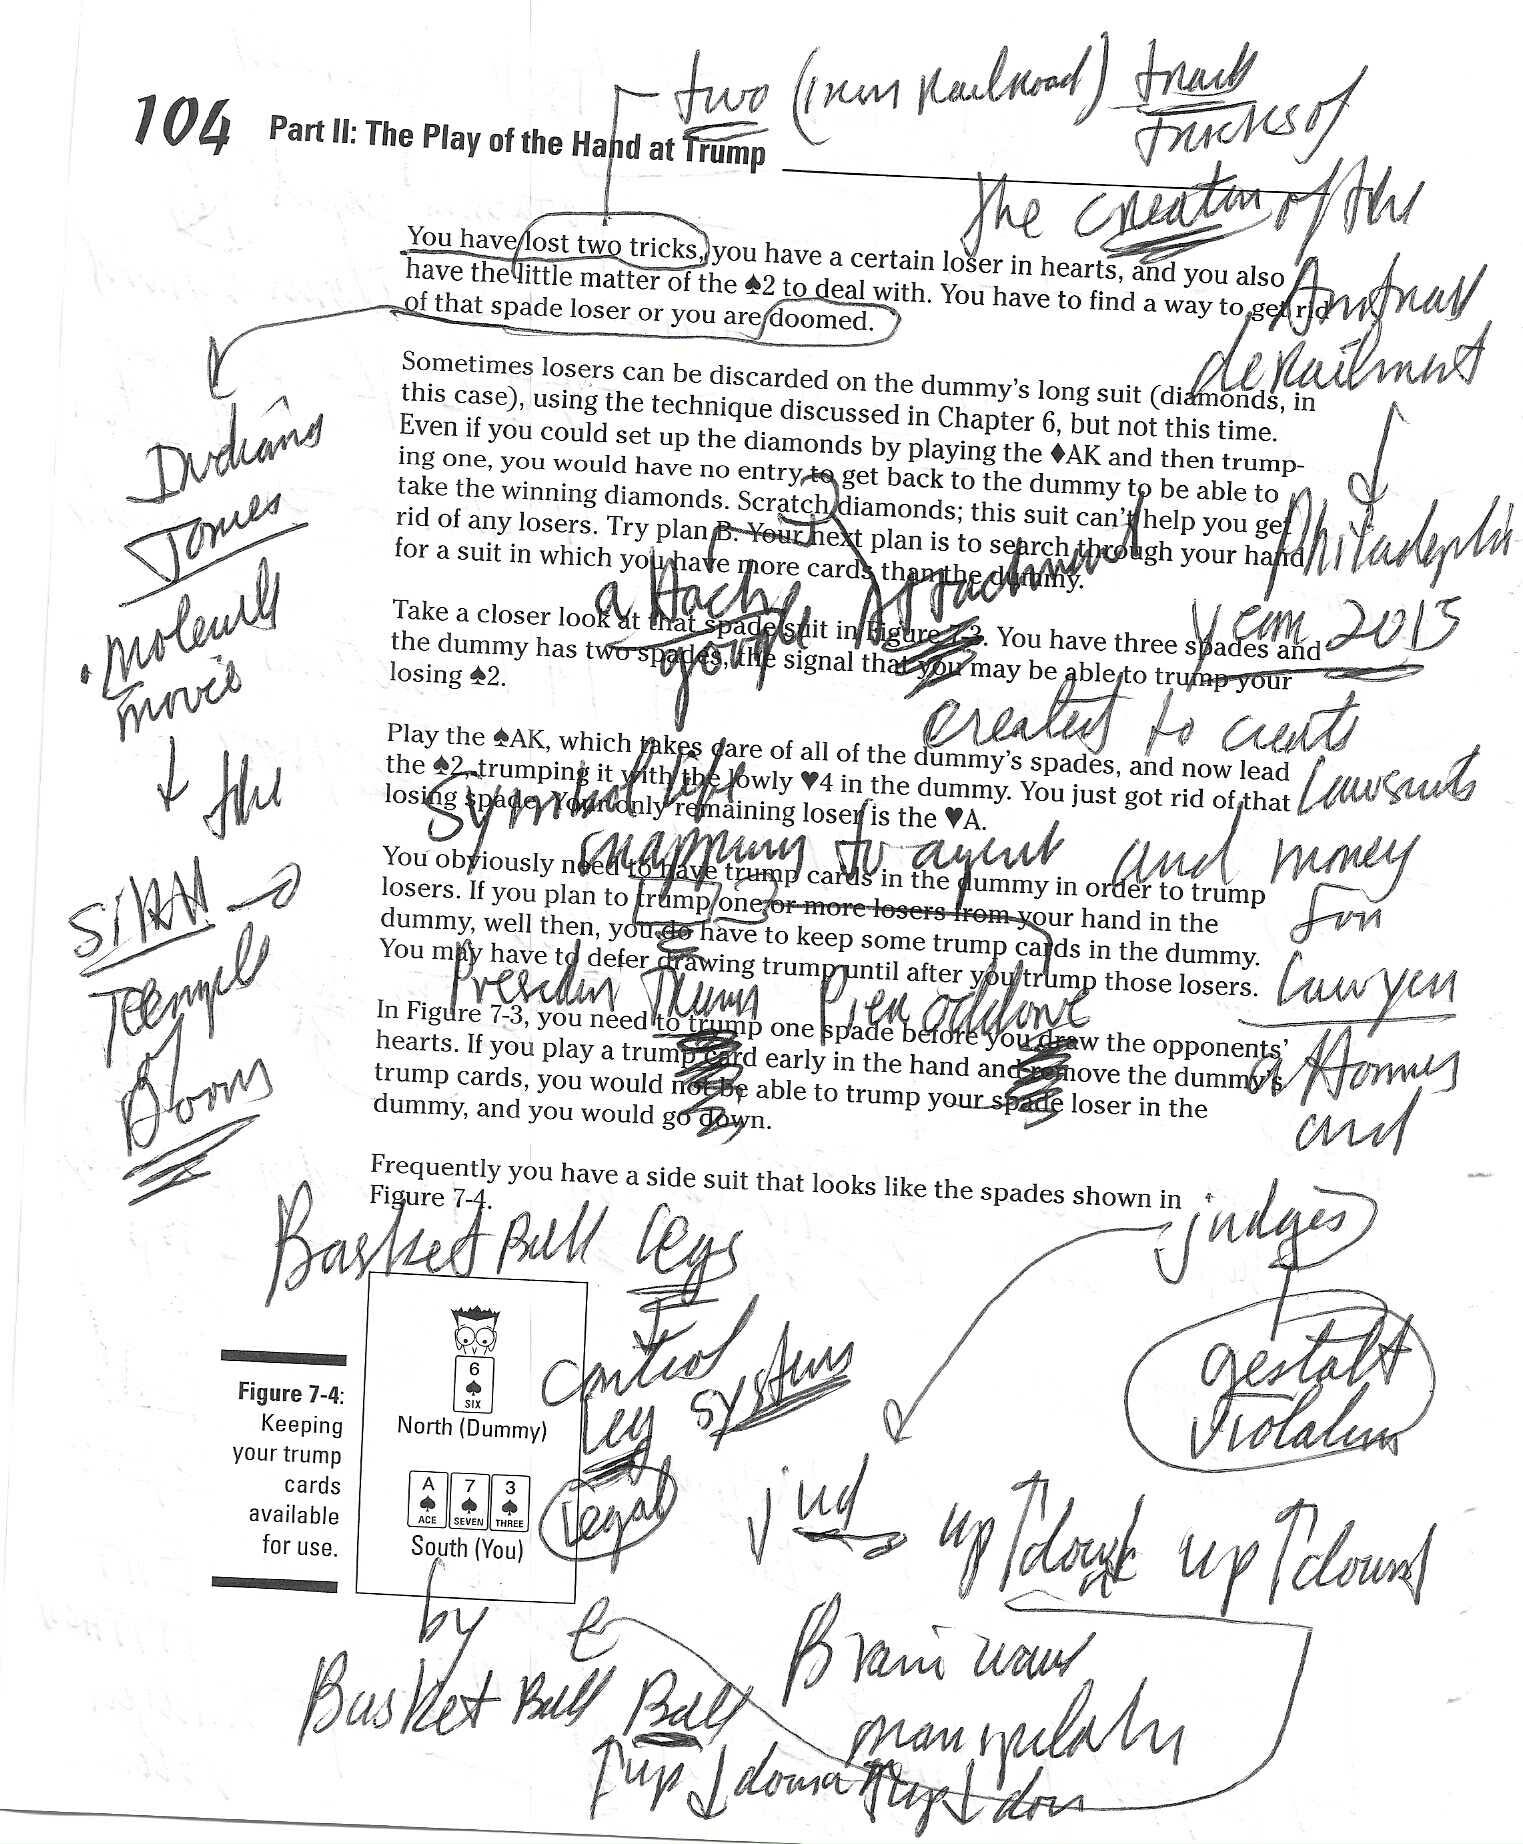 two (iron Railroad) track
tricks of
the creation of the
Amtrak
derailment
Philadelphia
year 2015
created to create
Lawsuits
and money
for
Lawyer
attornes
and
judges
gestalt
violation
104 Part II: The Play of the Hand at Trump
You have lost two tricks, you have a certain loser in hearts, and you also
have the little matter of the ♠2 to deal with. You have to find a way to get rid
of that spade loser or you are doomed.
Sometimes losers can be discarded on the dummy's long suit (diamonds, in
this case), using the technique discussed in Chapter 6, but not this time.
Even if you could set up the diamonds by playing the ♦AK and then trump-
ing one, you would have no entry to get back to the dummy to be able to
take the winning diamonds. Scratch diamonds; this suit can't help you get
rid of any losers. Try plan B. Your next plan is to search through your hand
for a suit in which you have more cards than the dummy.
Take a closer look at that spade suit in Figure 7-3. You have three spades and
the dummy has two spades, the signal that you may be able to trump your
losing ♠2.
Play the ♠AK, which takes care of all of the dummy's spades, and now lead
the ♠2, trumping it with the lowly ♥4 in the dummy. You just got rid of that
losing spade. Your only remaining loser is the ♥A.
You obviously need to have trump cards in the dummy in order to trump
losers. If you plan to trump one or more losers from your hand in the
dummy, well then, you do have to keep some trump cards in the dummy.
You may have to defer drawing trump until after you trump those losers.
In Figure 7-3, you need to trump one spade before you draw the opponents'
hearts. If you play a trump card early in the hand and remove the dummy's
trump cards, you would not be able to trump your spade loser in the
dummy, and you would go down.
Frequently you have a side suit that looks like the spades shown in
Figure 7-4.
Indiana
Jones
movie
the
Temple
of
Doom
attach
attachment
Symbol
snapping to agent
BasketBall Legs
control
Leg systems
Legal
Figure 7-4:
Keeping
your trump
cards
available
for use.
6
SIX
North (Dummy)
A 7 3
ACE SEVEN THREE
South (You)
by
BasketBall Ball
up down up
jud
up down up down
Brain wave